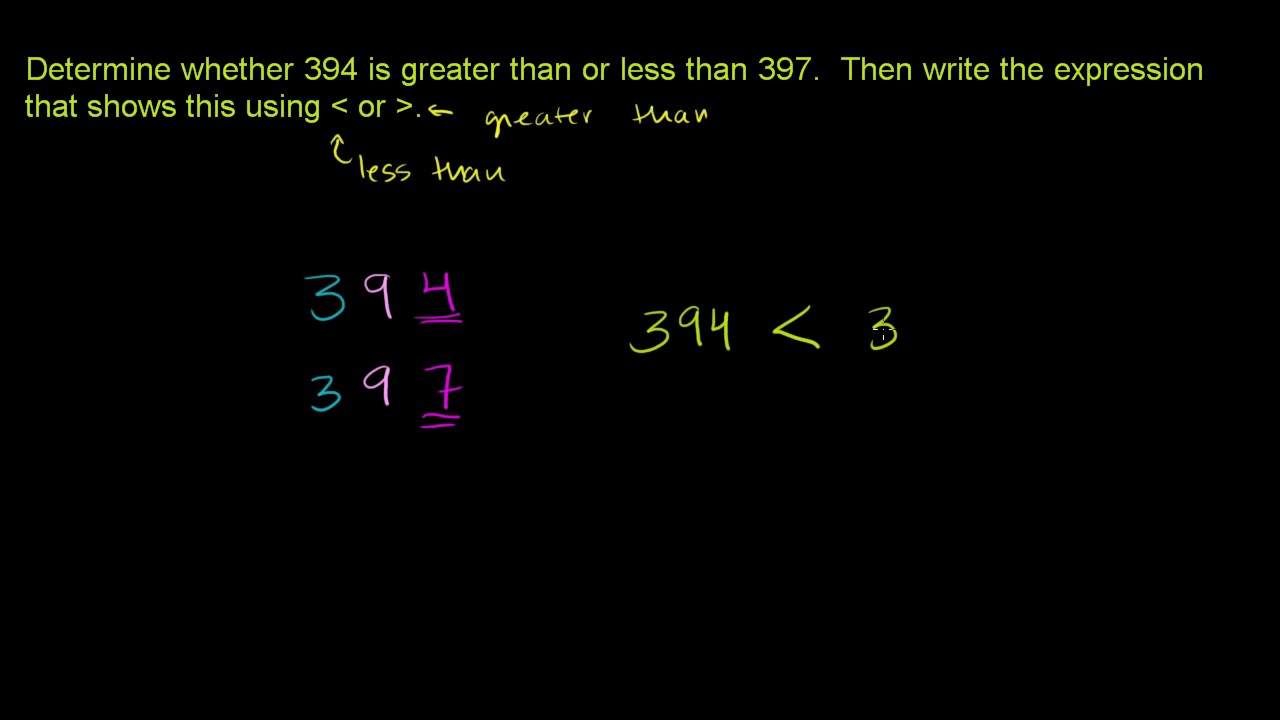 Determine whether 394 is greater than or less than 397. Then write the expression
that shows this using < or >. ← greater than
less than
394
397
394 < 3